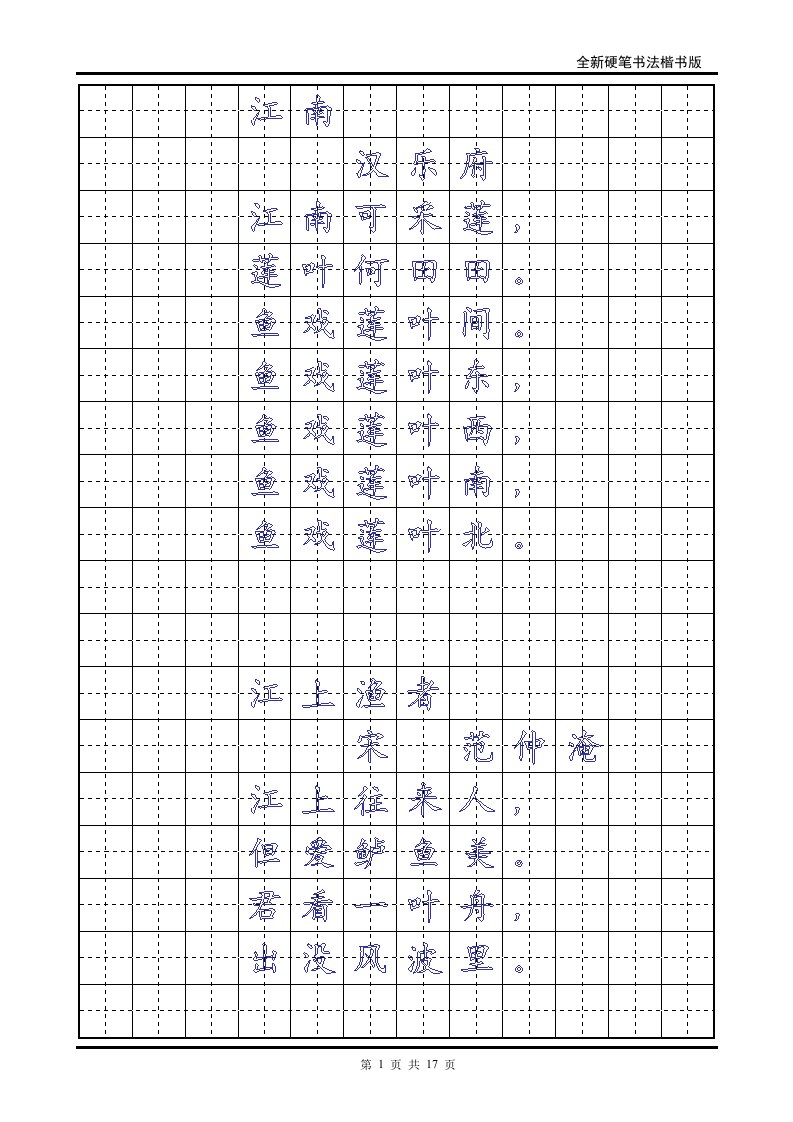 全新硬笔书法楷书版
江南
汉乐府
江南可采莲，
莲叶何田田。
鱼戏莲叶间。
鱼戏莲叶东，
鱼戏莲叶西，
鱼戏莲叶南，
鱼戏莲叶北。
江上渔者
宋 范仲淹
江上往来人，
但爱鲈鱼美。
君看一叶舟，
出没风波里。
第 1 页 共 17 页